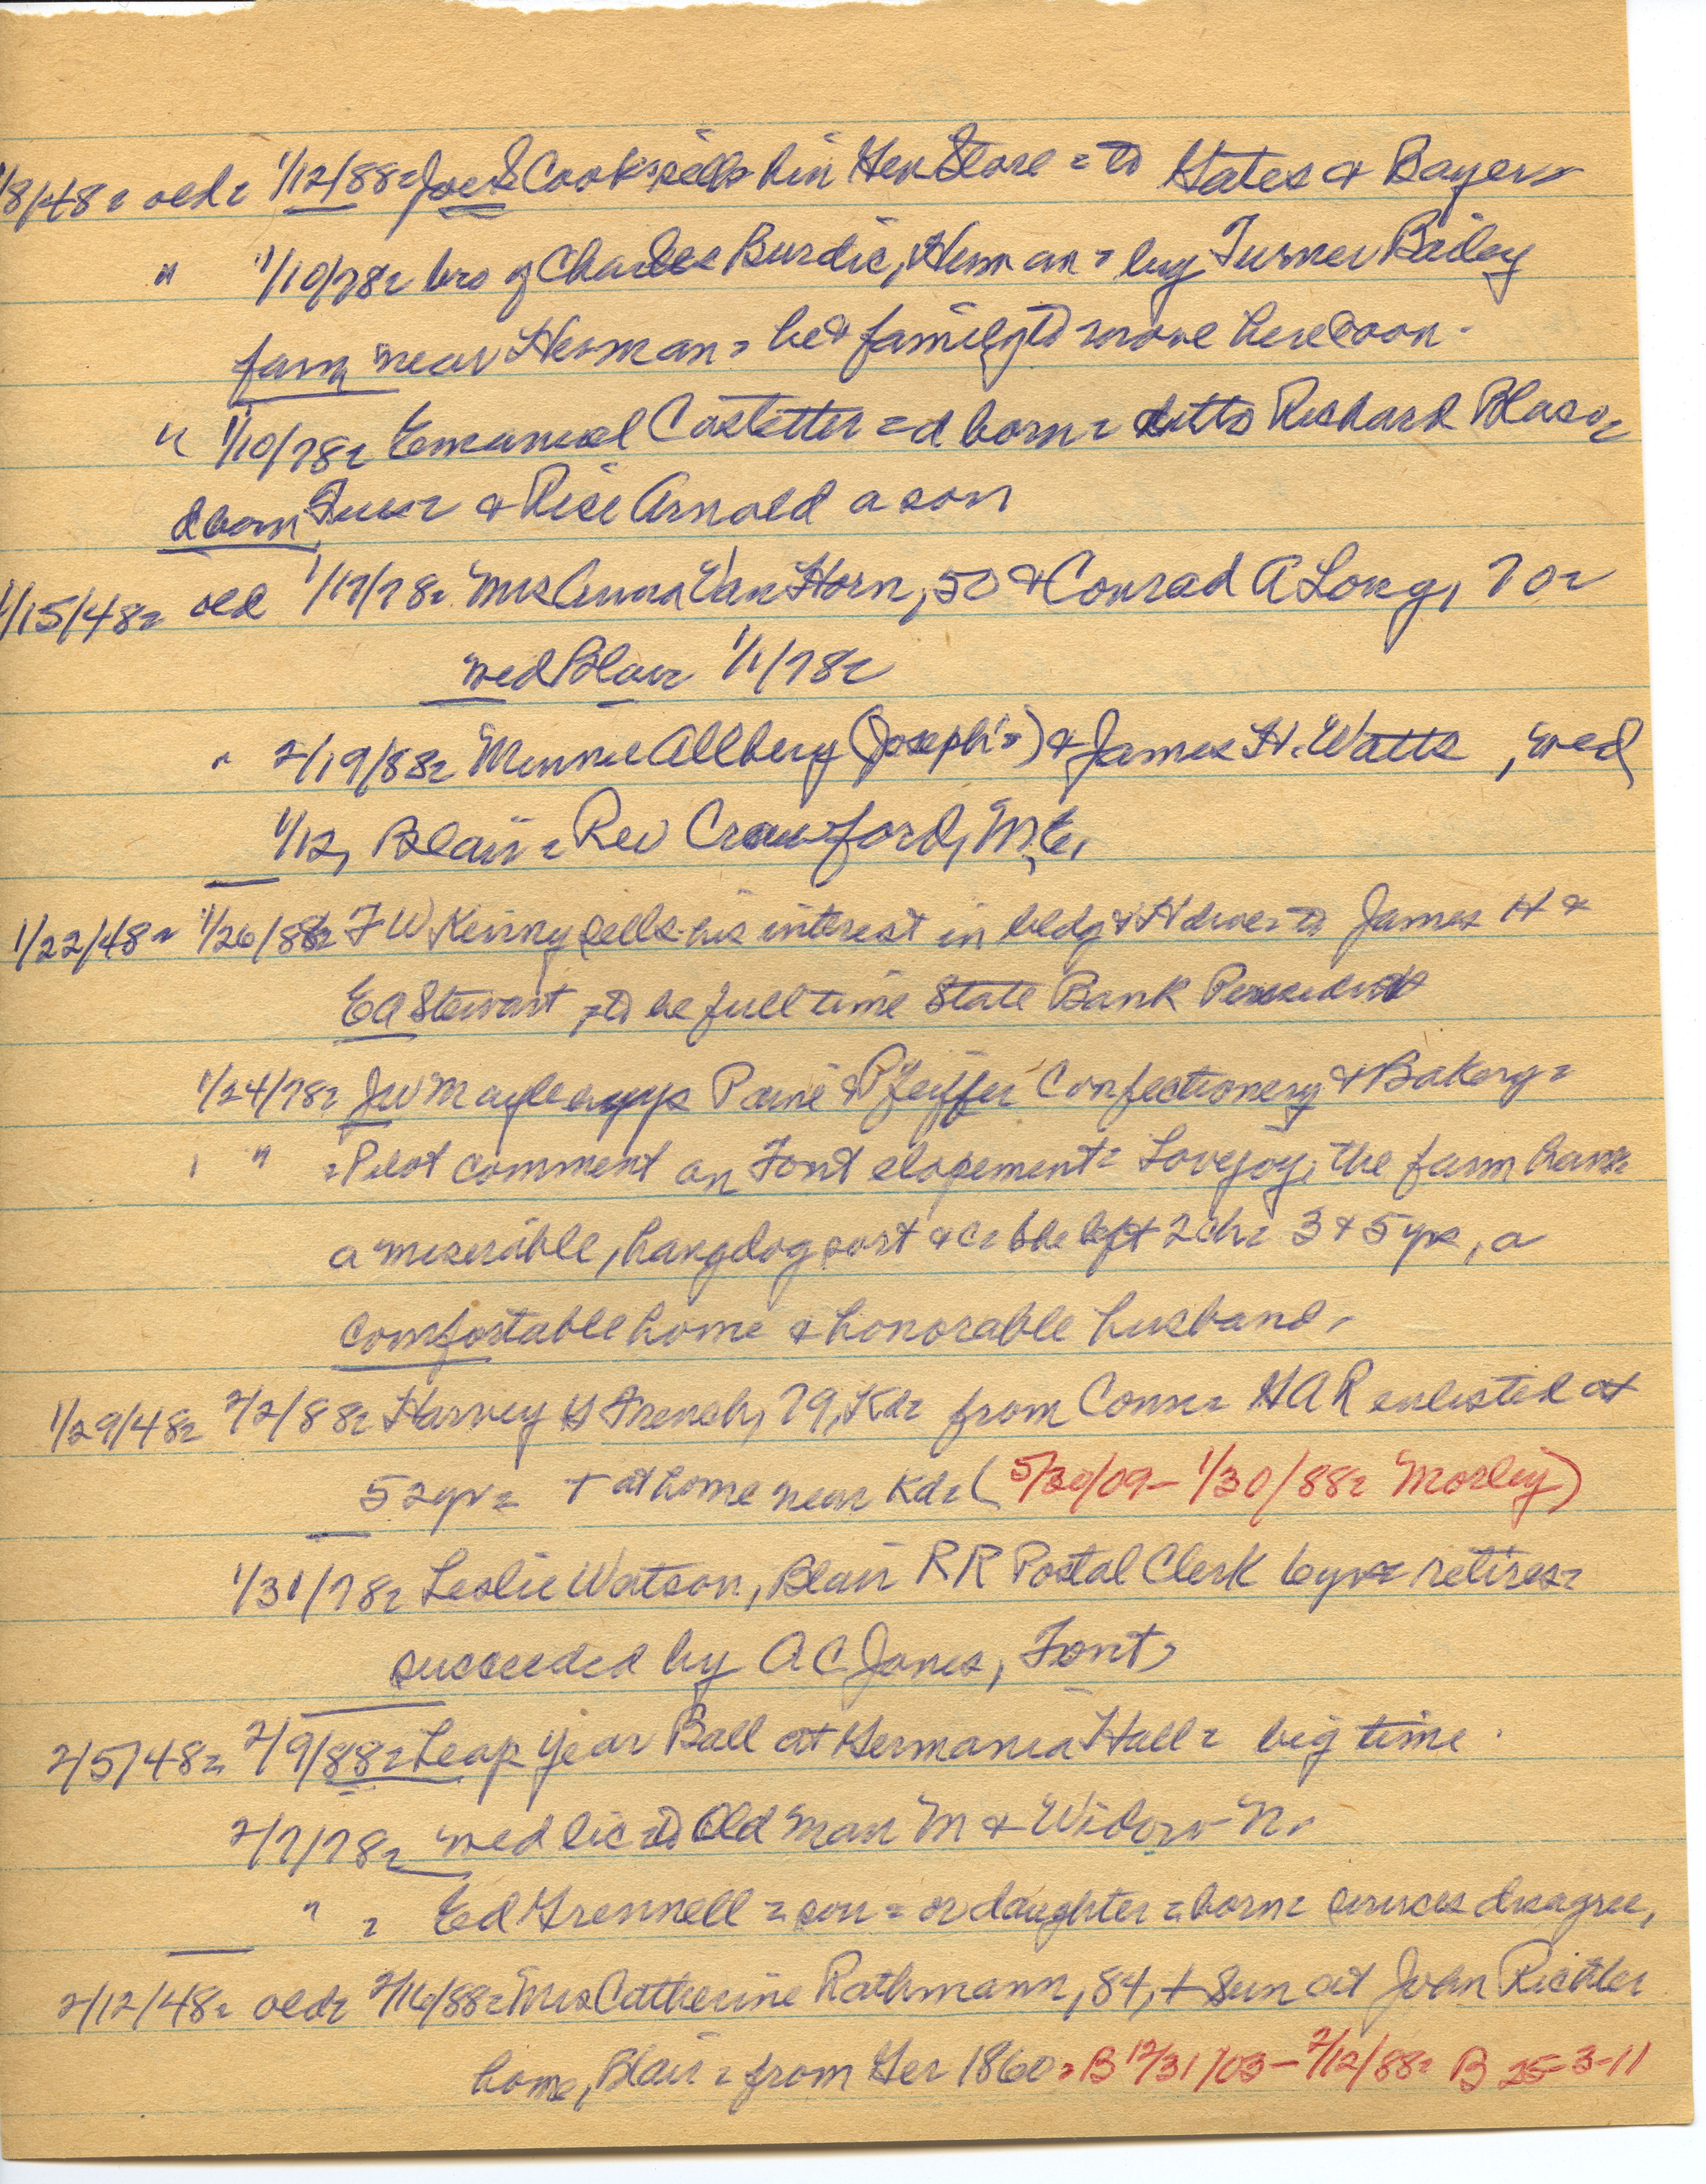 1/8/48 = old = 1/12/88 = Joe S Cook sells his Gen Store = to Gates & Bayers
" 1/10/78 = bro of Charles Burdic, Herman = buy Turner Bailey
farm near Herman = he & family to move here soon.
" 1/10/78 = Emanuel Castetter = d born = ditto Richard Blaso =
d born, & Rice Arnold a son
1/15/48 = old 1/17/78 = Mrs Anna Van Horn, 50 & Conrad A Long, 70 =
wed Blair 1/1/78 =
" 2/19/88 = Minnie Allbery (Joseph's) & James H. Watts, wed
1/12, Blair = Rev Crawford, M.E.
1/22/48 = 1/26/88 = F W Kenny sells his interest in bldg & Hdwe = to James H &
E A Stewart = to be full time State Bank President
1/24/78 = J W Mayle buys Paine & Pfeiffer Confectionery & Bakery =
" = Pilot comment on Font elopement = Lovejoy, the farm hand =
a miserable, hangdog sort &c = she left 2 ch = 3 & 5 yrs, a
comfortable home & honorable husband.
1/29/48 = 2/2/88 = Harvey French, 79, Kd = from Conn = GAR enlisted at
52 yr = + at home near Kd = ( 5/30/09 - 1/30/88 = Morley)
1/31/78 = Leslie Watson, Blair RR Postal Clerk 6 yrs = retires =
succeeded by A C Jones, Font,
2/5/48 = 2/9/88 = Leap Year Ball at Germania Hall = big time.
2/7/78 = wed lic to Old man M & Widow N.
" = Ed Grennell = son = or daughter = born = disagree,
2/12/48 = old = 2/16/88 = Mrs Catherine Rathmann, 84, + Sun at John Richter
home, Blair = from Ger 1860 = B 12/31/03 - 2/12/88 = B 25-3-11